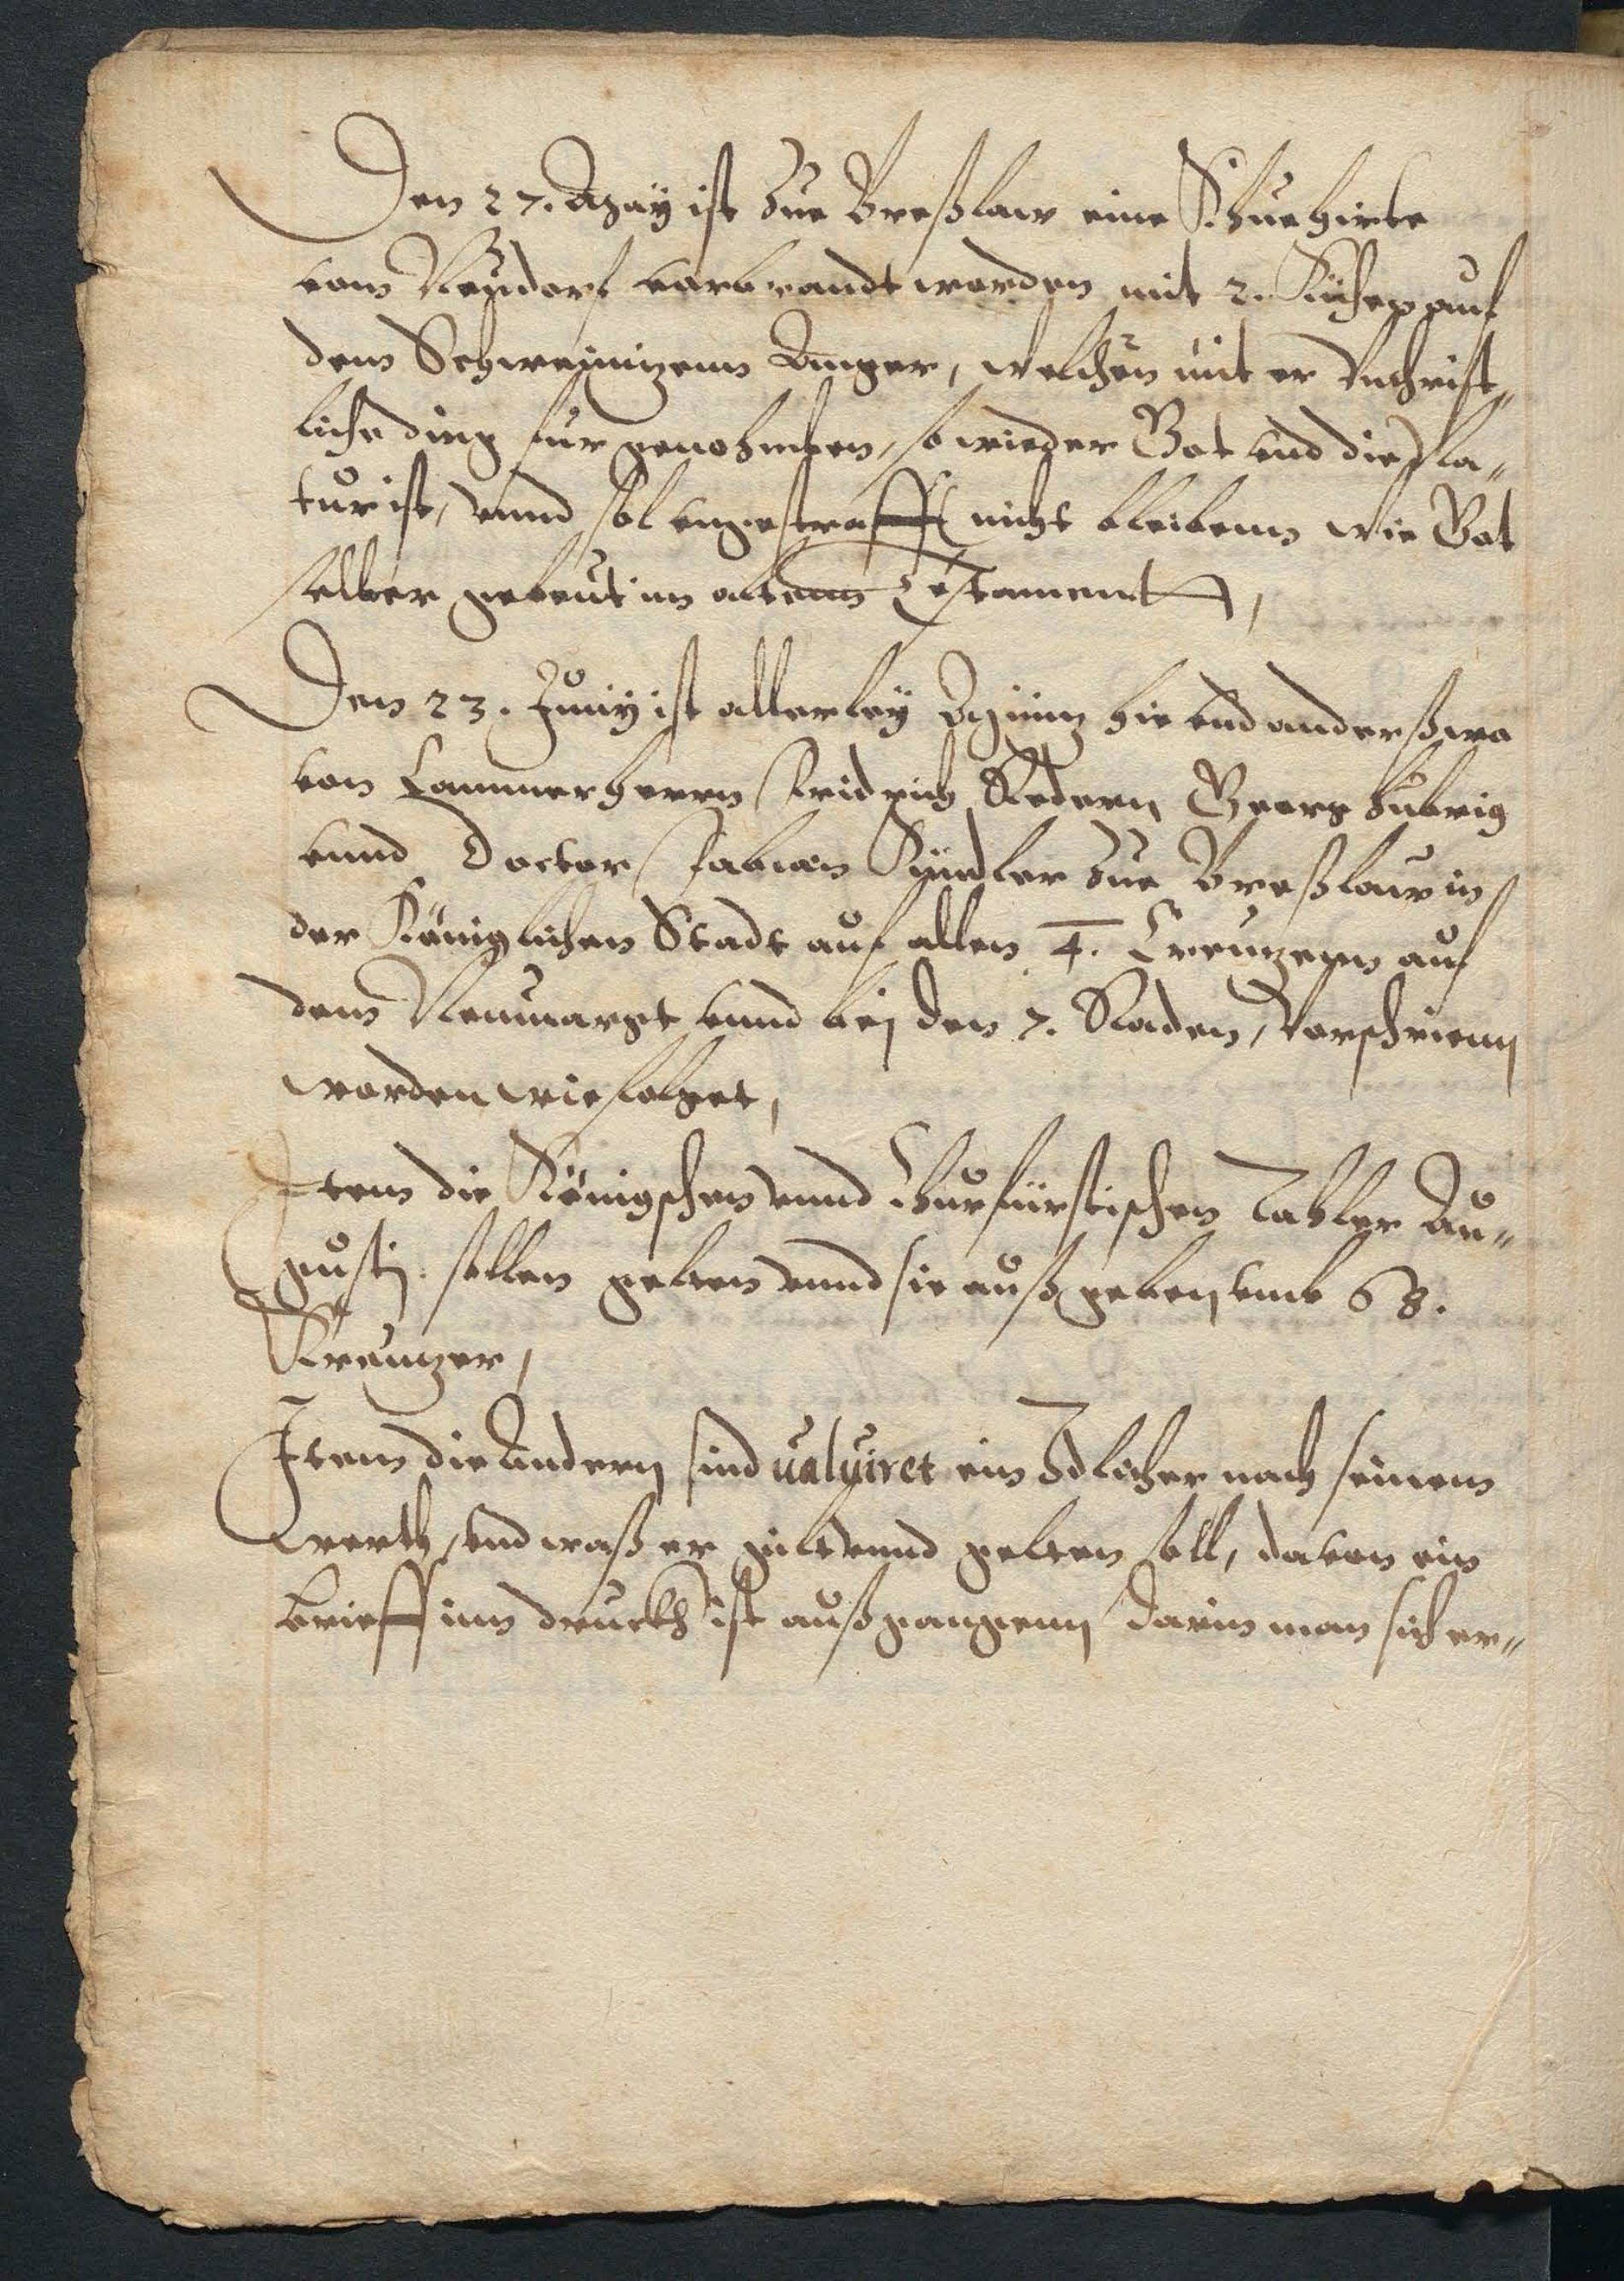 Den 27. May ist zue Breßlaw eine Khue hirte
vom Neudorf vorbrandt worden mit 2. Kühen auf
dem Schweinitzenn Anger, welchen mit er Vnchrist„
liche ding fur genohmen, so wieder Got vnd die Na„
tur ist, vnnd sol vngestrafft nicht bleibenn wie Got
selber gebeut im altenn Testament,
Den 23. Junij ist allerley Müntz hie vnd anderßwo
von Cammerherrn Fridrich Redern Georg
vnnd Doctor Fabian Kindler zue Breßlaw in
der Königlichen Stadt auf allen 4. Creutzenn auf
dem Neumargt vnnd bej den 7. Raden, Vorschrienn
worden wie folget,
Item die Königschen vnnd Churfürstischen Tahler Au„
gustj. sollen gelten vnnd sie auß geben vmb 68.
Kreutzer,
Item die Andern sind ualuiret ein Idlicher nach seinem
werth, vnd waß er gilt vnnd gelten soll, davon ein
brieff inn druckh ist außgangenn darin man sich er„